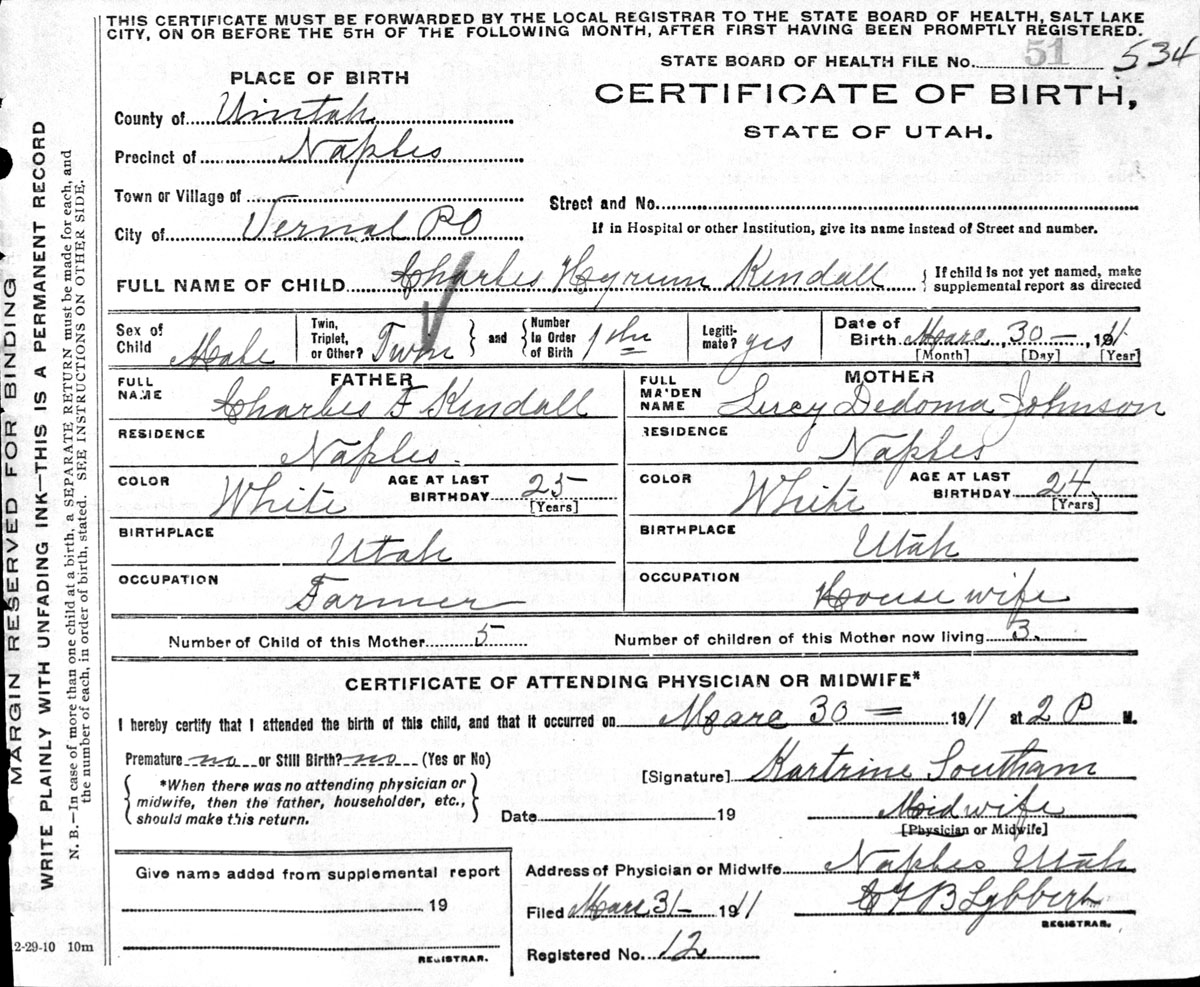 THIS CERTIFICATE MUST BE FORWARDED BY THE LOCAL REGISTRAR TO THE STATE BOARD OF HEALTH, SALT LAKE
CITY, ON OR BEFORE THE 5TH OF THE FOLLOWING MONTH, AFTER FIRST HAVING BEEN PROMPTLY REGISTERED.
STATE BOARD OF HEALTH FILE No. 51 534
PLACE OF BIRTH
CERTIFICATE OF BIRTH,
STATE OF UTAH.
County of Uintah
Precinct of Naples
Town or Village of
Street and No.
City of Vernal PO
If in Hospital or other Institution, give its name instead of Street and number.
FULL NAME OF CHILD Charles Hyrum Kendall { If child is not yet named, make
supplemental report as directed
Sex of Child Male
Twin, Triplet, or Other? Twin } and { Number in Order of Birth 1
Legiti- mate? yes
Date of Birth Marc 30 - , 1911
[Month] [Day] [Year]
FATHER
FULL NAME Charles F Kendall
MOTHER
FULL MAIDEN NAME Lucy Dedoma Johnson
RESIDENCE Naples
RESIDENCE Naples
COLOR White AGE AT LAST BIRTHDAY 25 [Years]
COLOR White AGE AT LAST BIRTHDAY 24 [Years]
BIRTHPLACE Utah
BIRTHPLACE Utah
OCCUPATION Farmer
OCCUPATION House wife
Number of Child of this Mother 5 Number of children of this Mother now living 3.
CERTIFICATE OF ATTENDING PHYSICIAN OR MIDWIFE*
I hereby certify that I attended the birth of this child, and that it occurred on Marc 30 = 1911 at 2 P M.
Premature no or Still Birth? no (Yes or No)
{ *When there was no attending physician or
midwife, then the father, householder, etc.,
should make this return. }
[Signature] Kartrine Southam
Date 19 Midwife
[Physician or Midwife]
Give name added from supplemental report
19
REGISTRAR.
Address of Physician or Midwife Naples Utah
Filed Marc 31- 1911 C F B Lybbert
REGISTRAR.
Registered No. 12
MARGIN RESERVED FOR BINDING
WRITE PLAINLY WITH UNFADING INK—THIS IS A PERMANENT RECORD
N. B.—In case of more than one child at a birth, a SEPARATE RETURN must be made for each, and
the number of each, in order of birth, stated. SEE INSTRUCTIONS ON OTHER SIDE.
2-29-10 10m